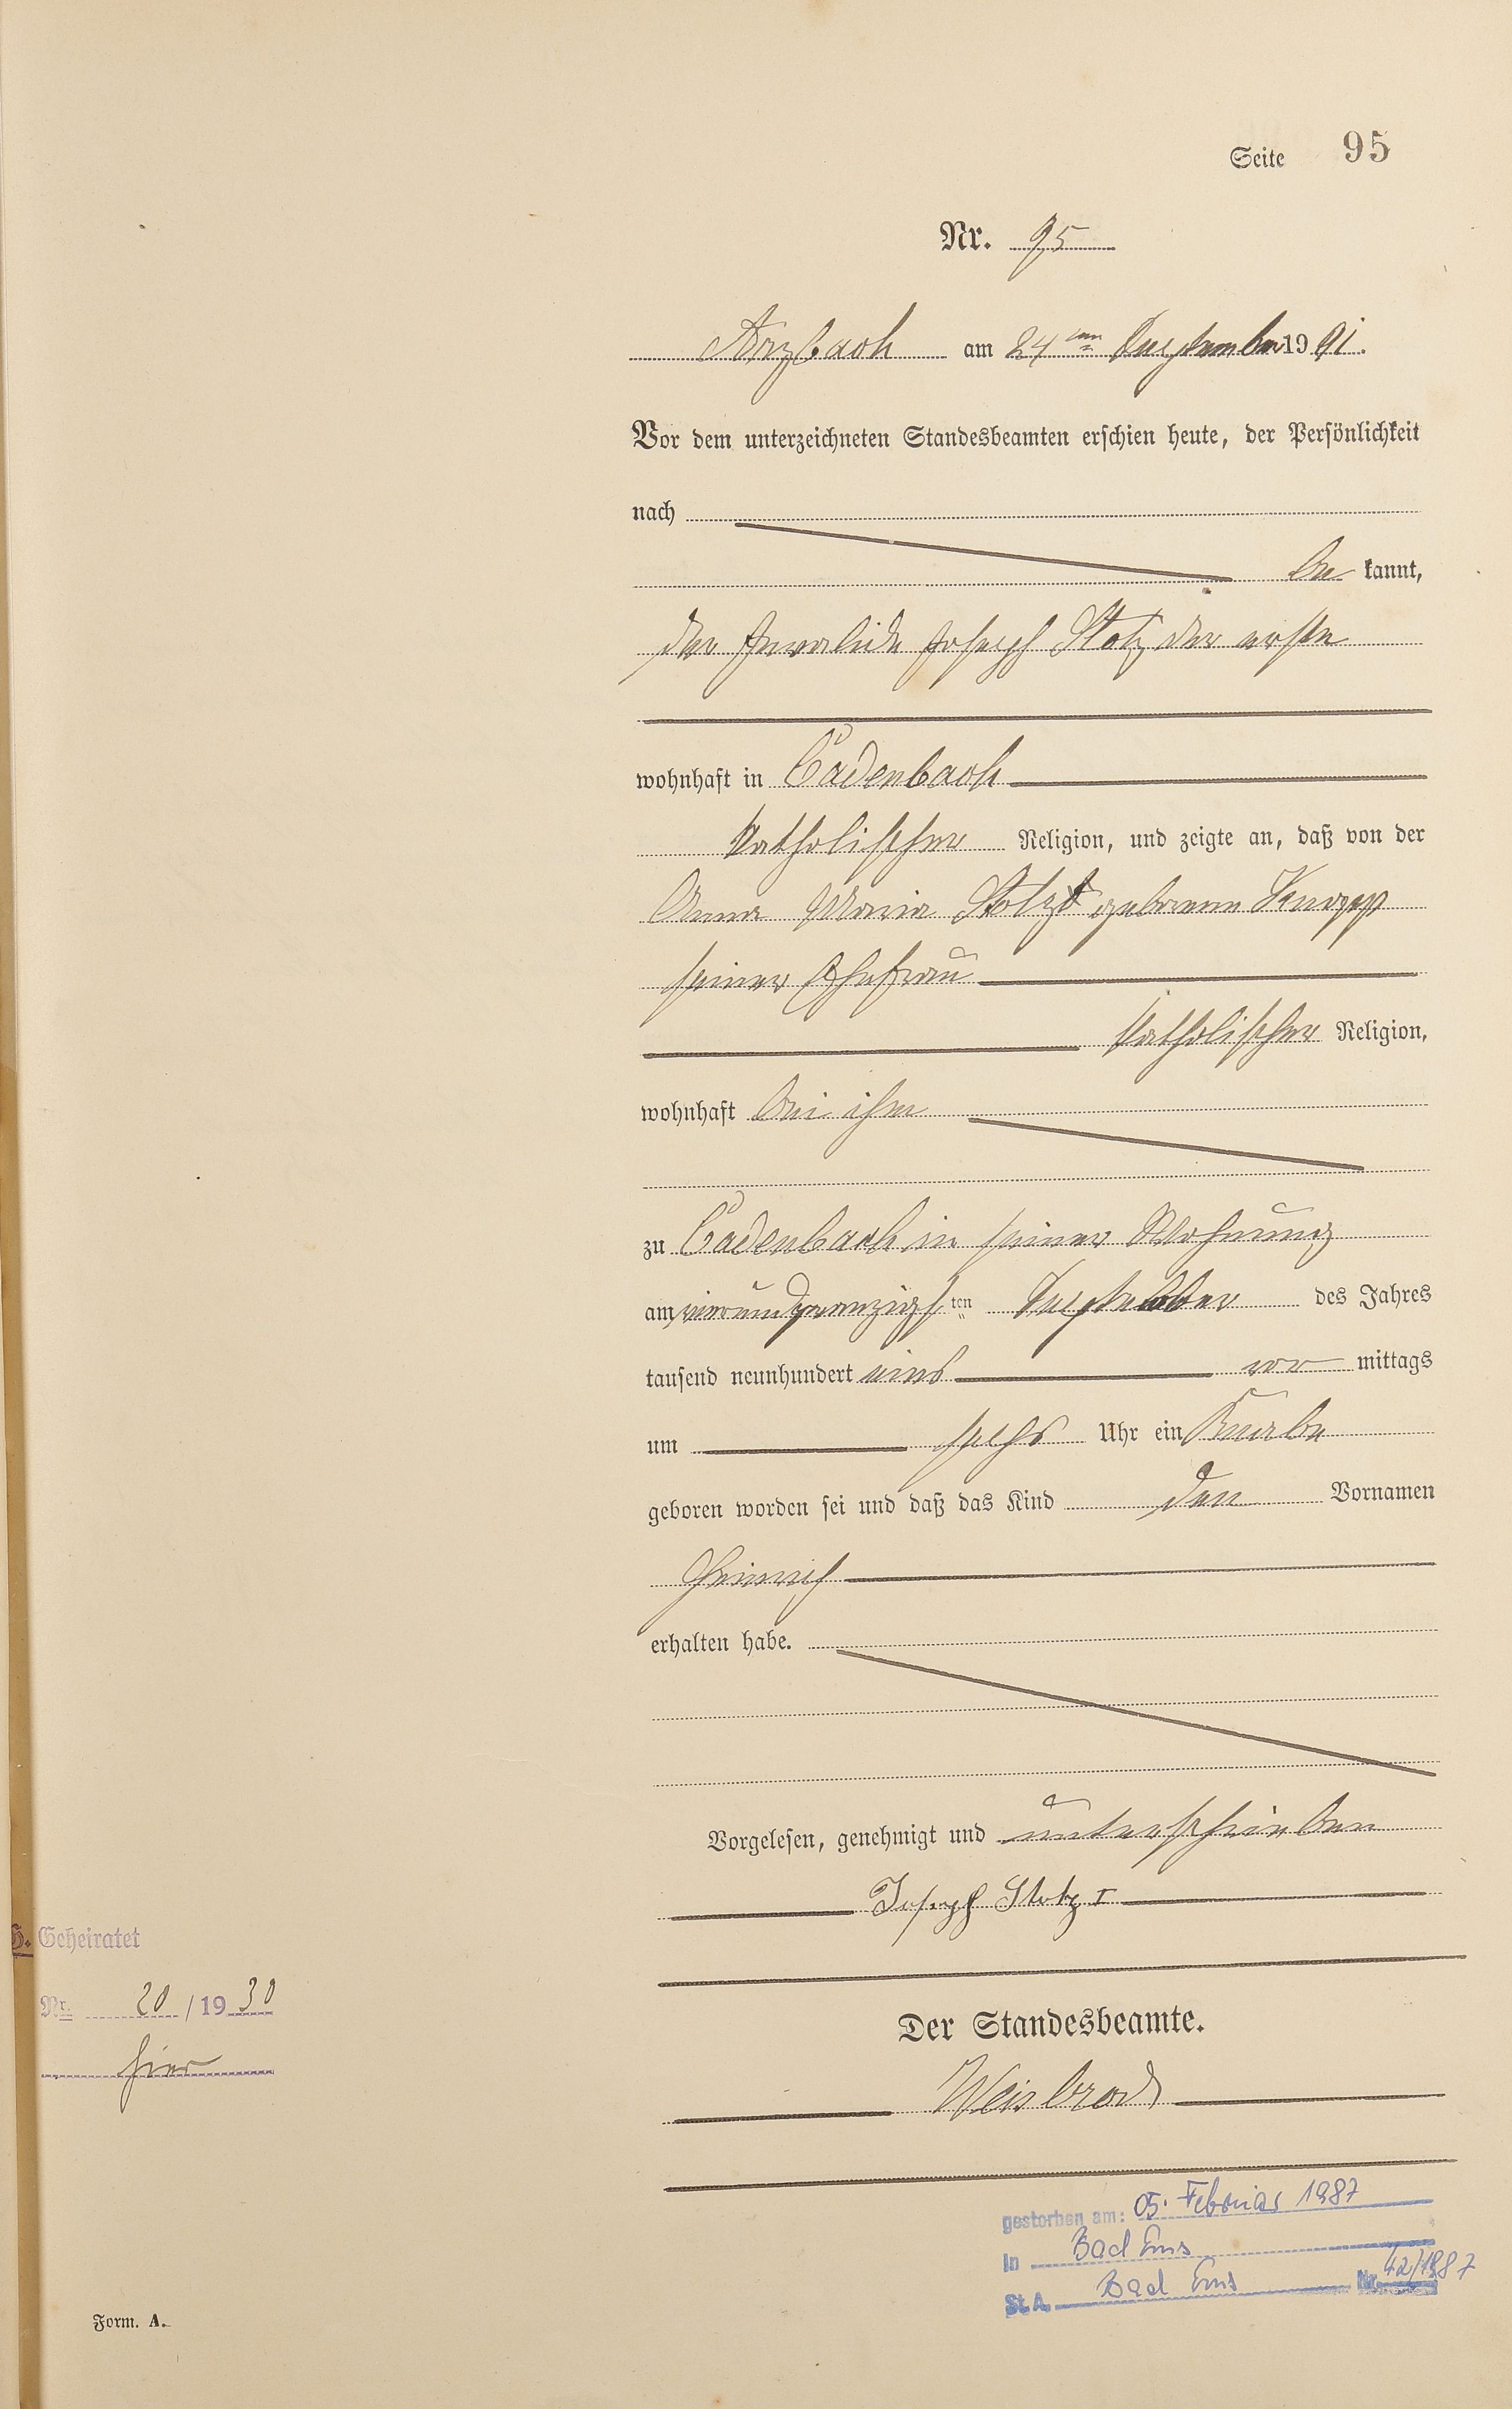 Seite 95
Nr. 95
Arzbach am 24ten September 1901.
Vor dem unterzeichneten Standesbeamten erschien heute, der Persönlichkeit
nach
be kannt,
der Invalide Joseph Stotz der erste
wohnhaft in Cadenbach
katholischer Religion, und zeigte an, daß von der
Anna Maria Stotz geborene Knopp
seiner Ehefrau
katholischer Religion,
wohnhaft bei ihm
zu Cadenbach in seiner Wohnung
am vierundzwanzigsten ten September des Jahres
tausend neunhundert eins vor mittags
um sechs Uhr ein Knabe
geboren worden sei und daß das Kind den Vornamen
Heinrich
erhalten habe.
Vorgelesen, genehmigt und unterschrieben
Joseph Stotz I
Der Standesbeamte.
Weisbrod
G. Geheiratet
Nr. 20/1930
hier
gestorben am: 05. Februar 1987
in Bad Ems
St.A. Bad Ems Nr. 42/1987
Form. A.